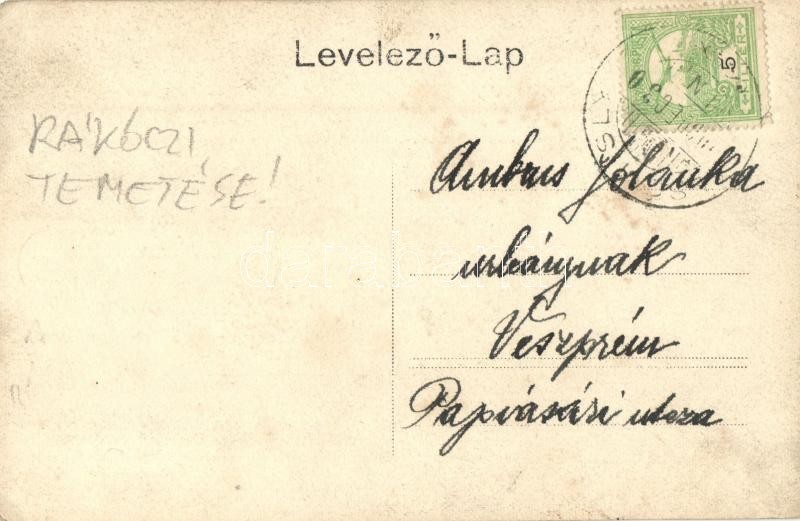 Levelező-Lap
5
RÁKÓCZI
TEMETÉSE!
Ambrus Jolánka
urleánynak
Veszprém
Papvásári utcza